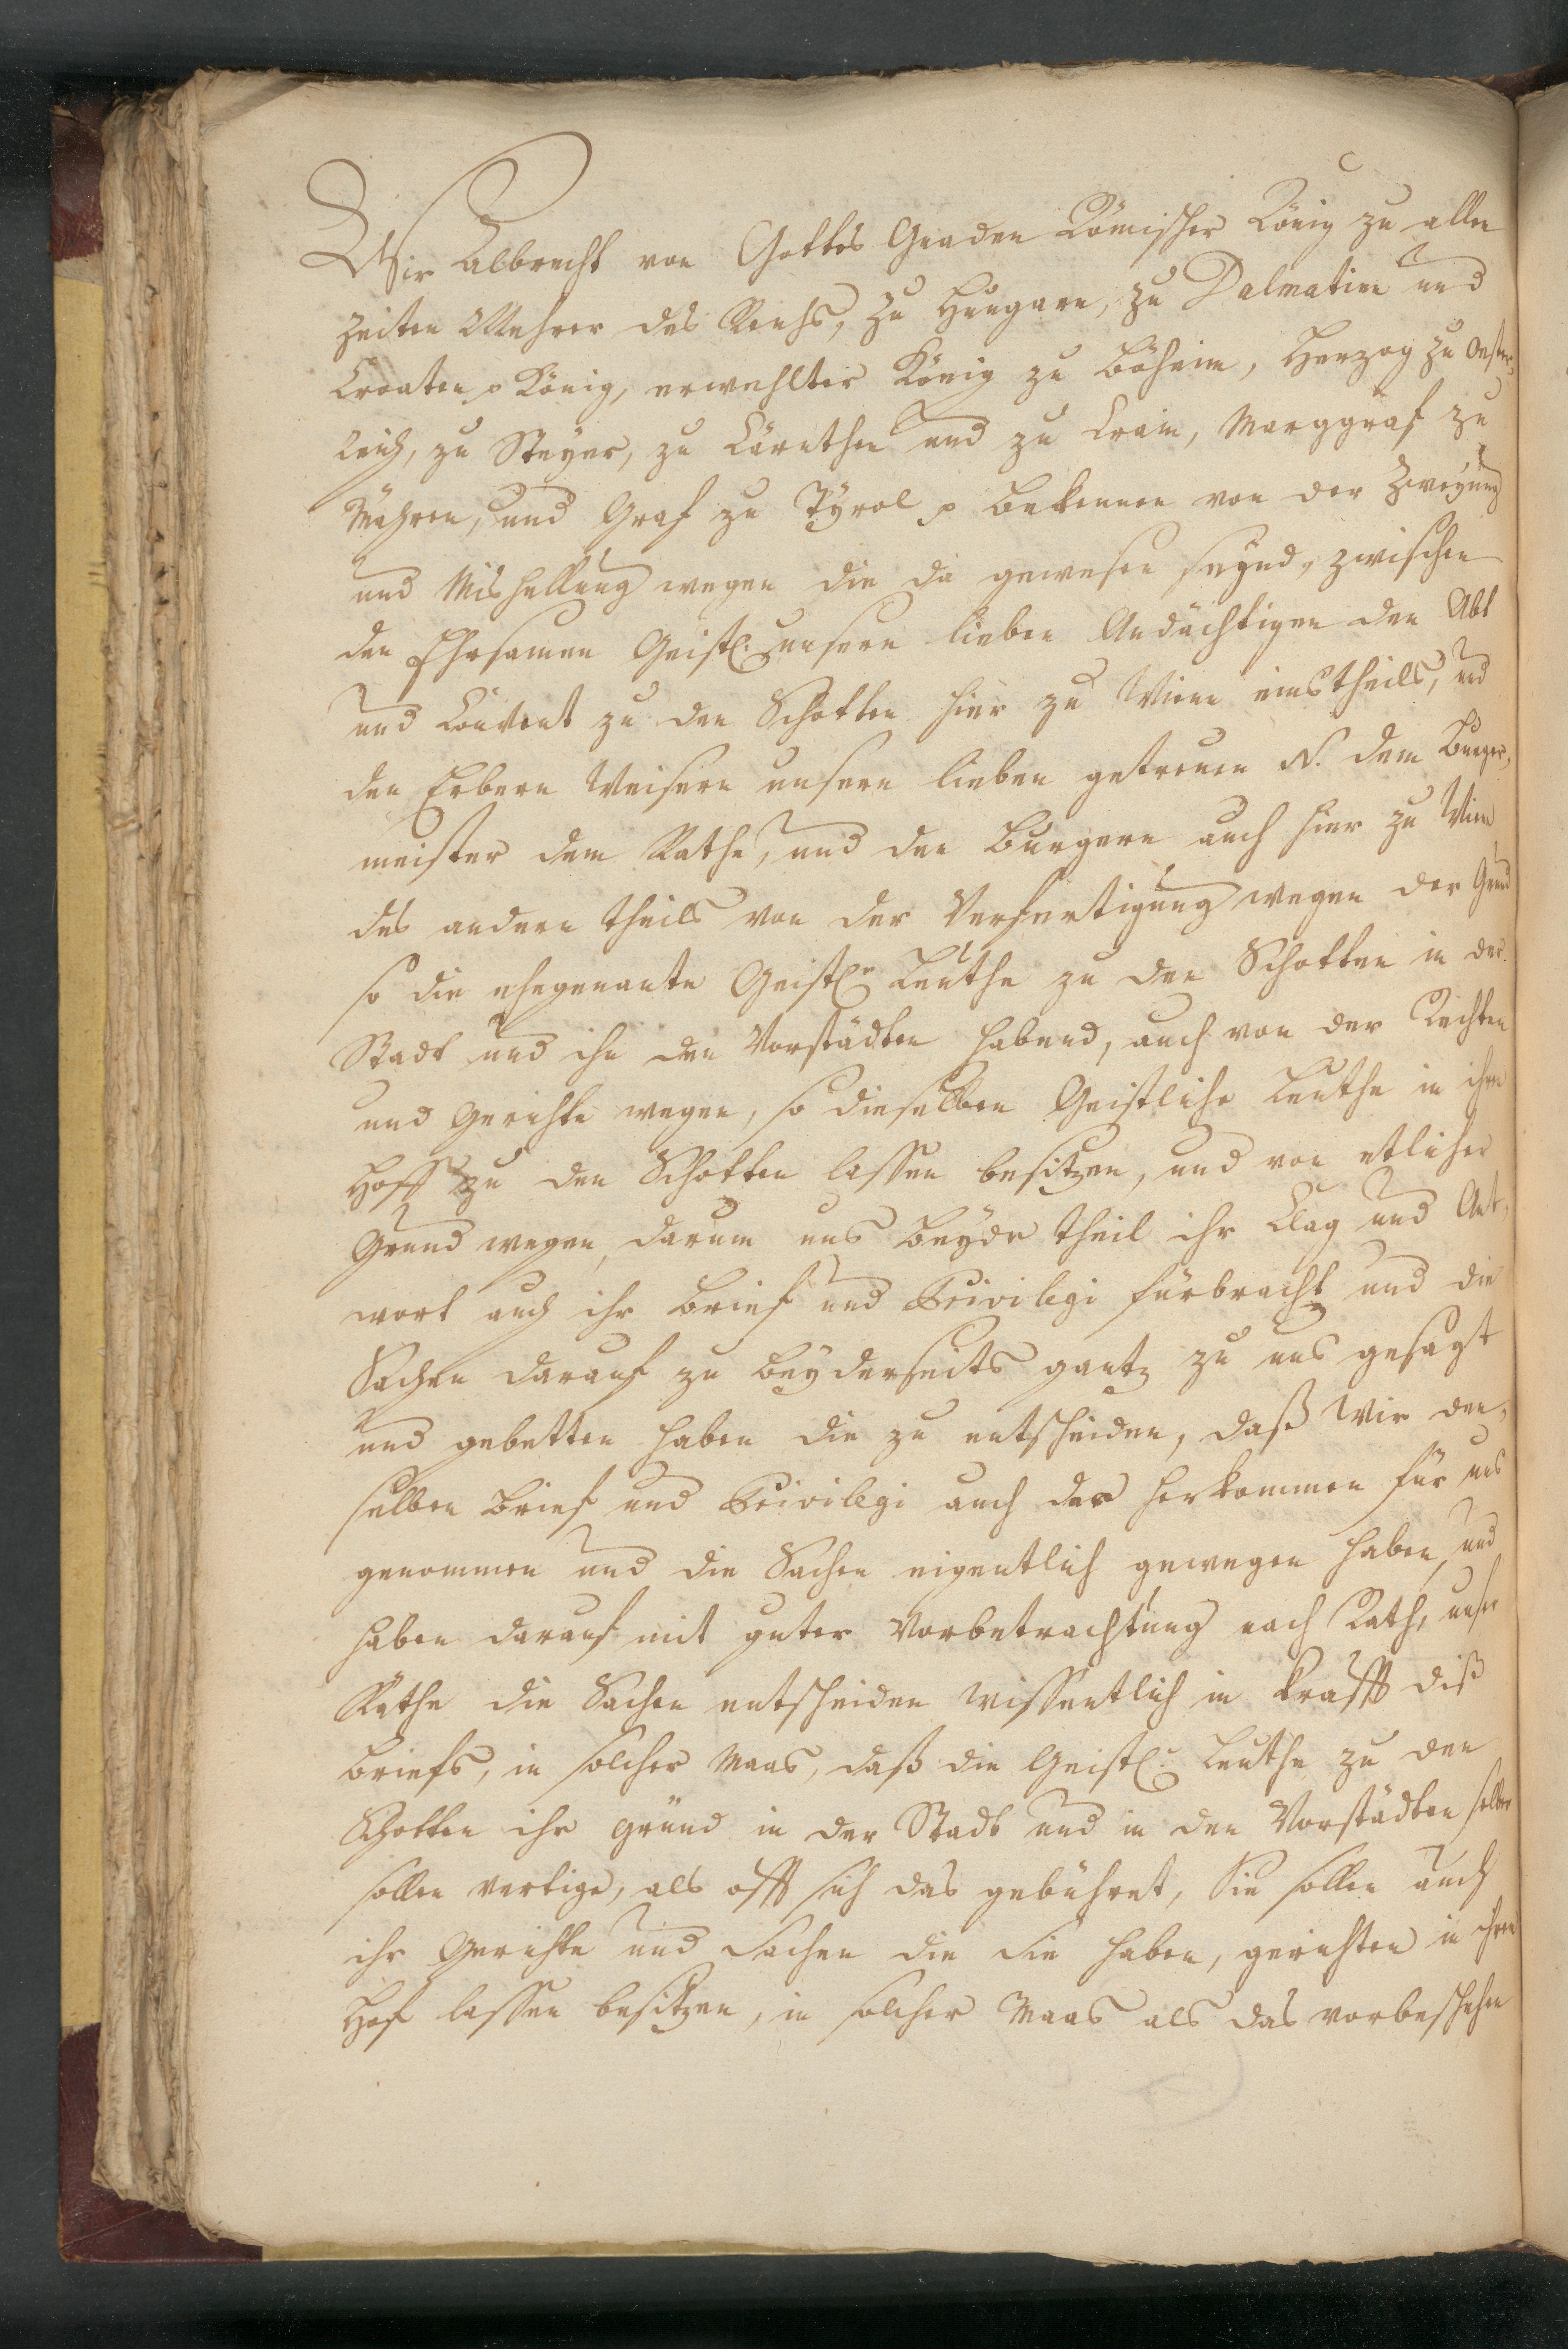 Wir Albrecht von Gottes Gnaden Römischer König zu allen
Zeiten Mehrer des Reichs, zu Hungarn, zu Dalmatien und
Croaten p König, erwehlter König zu Böheim, Herzog zu Oester,
reich, zu Steyer, zu Kärnthen und zu Crain, Marggraf zu
Mähren, und Graf zu Tÿrol p bekennen von der Zweyung
und Mishellung wegen die da gewesen seynd, zwischen
den Ehrsamen Geistl. unsern lieben Andächtigen den Abt
und Convent zu den Schotten hier zu Wienn einstheils, und
den Erbern Weisern unsern lieben getreuen N. dem Burger,
meister dem Rathe, und den Burgern auch hier zu Wienn
des andern theils von der Verfertigung wegen der Gründ
so die ehegenante Geistle Leuthe zu den Schotten in der
Stadt und ihn den Vorstädten habend, auch von der Rechten
und Gerichte wegen, so dieselben Geistliche Leuthe in ihren
Hoff zu den Schotten lassen besitzen, und von etlicher
Grund wegen, darum uns beyde theil ihr Clag und Ant,
wort auch ihr Brief und Privilegi fürbracht und die
Sachen darauf zu beyderseits gantz zu uns gesagt
und gebetten haben die zu entscheiden, daß Wir den,
selben Brief und Privilegi auch das herkommen für uns
genommen und die Sachen eigentlich gewegen haben, und
haben darauf mit guter Vorbetrachtung nach Rath, unser
Räthe die Sachen entscheiden wissentlich in Krafft diß
Briefs, in solcher Maas, daß die Geistl. Leuthe zu den
Schotten ihr gründ in der Stadt und in den Vorstädten selber
sollen vertige, als offt sich das gebühret, Sie sollen auch
ihr Gerichte und Sachen die Sie haben, gerichten in ihren
Hof lassen besitzen, in solcher Maas als das vorbeschehen